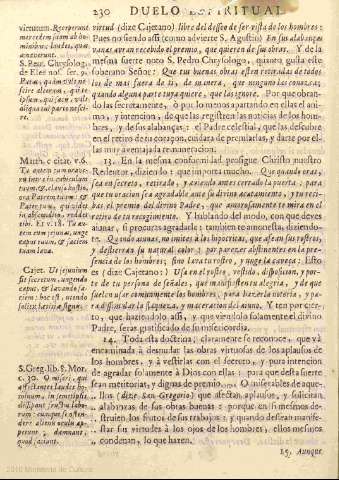 230 DUELO ESPIRITUAL
virtutum. Receperunt
mercedem suam ab ho-
minibus: laudes, quas
amaverunt.
S. Petr. Chrysolog.
de Eleemos.
Matth. 6 citat. v. 6.
Tu autem cum orave-
ris intra in cubiculum
tuum, & clauso hostio,
ora Patrem tuum: &
Pater tuus, qui videt
in abscondito, reddet
tibi. Et v. 18. Tu au-
tem cum jejunas, unge
caput tuum, & faciem
tuam lava.
Cajet. Ut jejunium
sit secretum, ungendo
caput, & lavando fa-
ciem: hoc est, utendo
solitis lætitiæ signis.
S. Greg. lib. 8. Mor.
c. 30. O miseri, qui
affectantes laudes ho-
minum, in semetipsis
dissipant fructus labo-
rum: cumque se osten-
dere alienis oculis ap-
petunt, damnant,
quod agunt.
virtud (dize Cajetano) libre del desseo de ser vista de los hombres:
Pues no siendo assi (como advierte S. Agustin) En sus alabanças
vanas avran recebido el premio, que quieren de sus obras. Y de la
mesma suerte noto S. Pedro Chrysologo, quanto gusta este
soberano Señor: Que tus buenas obras esten retiradas de todos
los de mas fuera de ti, de manera, que ninguno las conozca,
quando alguna parte tuya quiere, que las ignore. Por que obran-
dolas secretamente, ò por lo menos apartando en ellas el ani-
mo, y intencion, de que las registren las noticias de los hom-
bres, y de sus alabanças: el Padre celestial, que las descubre
en el retiro de tu coraçon, cuidara de premiarlas, y darte por el-
las muy aventajada remuneracion.
13. En la mesma conformidad prosigue Christo nuestro
Redentor, diziendo: que importa mucho. Que quando oras,
sea en secreto, retirado, y aviendo antes cerrado la puerta: para
que tu oracion sea agradable ante su divino acatamiento, y tu reci-
bas el premio del divino Padre, que amorosamente te mira en el
retiro de tu recogimiento. Y hablando del modo, con que deves
ayunar, si procuras agradarle: tambien te amonesta, diziendo-
te. Quando ayunas, no imites à los hipocritas, que afean sus rostros,
y destierran su natural color, por parecer abstinentes en la pre-
sencia de los hombres; sino lava tu rostro, y unge la cabeça: Esto
es (dize Cajetano:) Usa en el rostro, vestido, disposicion, y por-
te de tu persona de señales, que manifiesten tu alegria, y de que
suelen usar comunmente los hombres, para hazerla notoria, y pa-
ra dissimular la flaqueza, y maceracion del ayuno. Y ten por cier-
to, que haziendolo assi, y que viendolo solamente el divino
Padre, seràs gratificado de su misericordia.
14. Toda esta doctrina, claramente se reconoce, que và
encaminada à desnudar las obras virtuosas de los aplausos de
los hombres, y à vestirlas con el decente, y pura intencion
de agradar solamente à Dios con ellas: para que desta suerte
sean meritorias, y dignas de premio. O miserables de aque-
llos (dize San Gregorio) que afectan aplausos, y solicitan
alabanças de sus obras buenas: porque en si mesmos de-
struien los frutos de sus trabajos: y quando desean manife-
star sus virtudes à los ojos de los hombres, ellos mesmos
condenan, lo que hazen.
15. Aunque
2010 Ministerio de Cultura